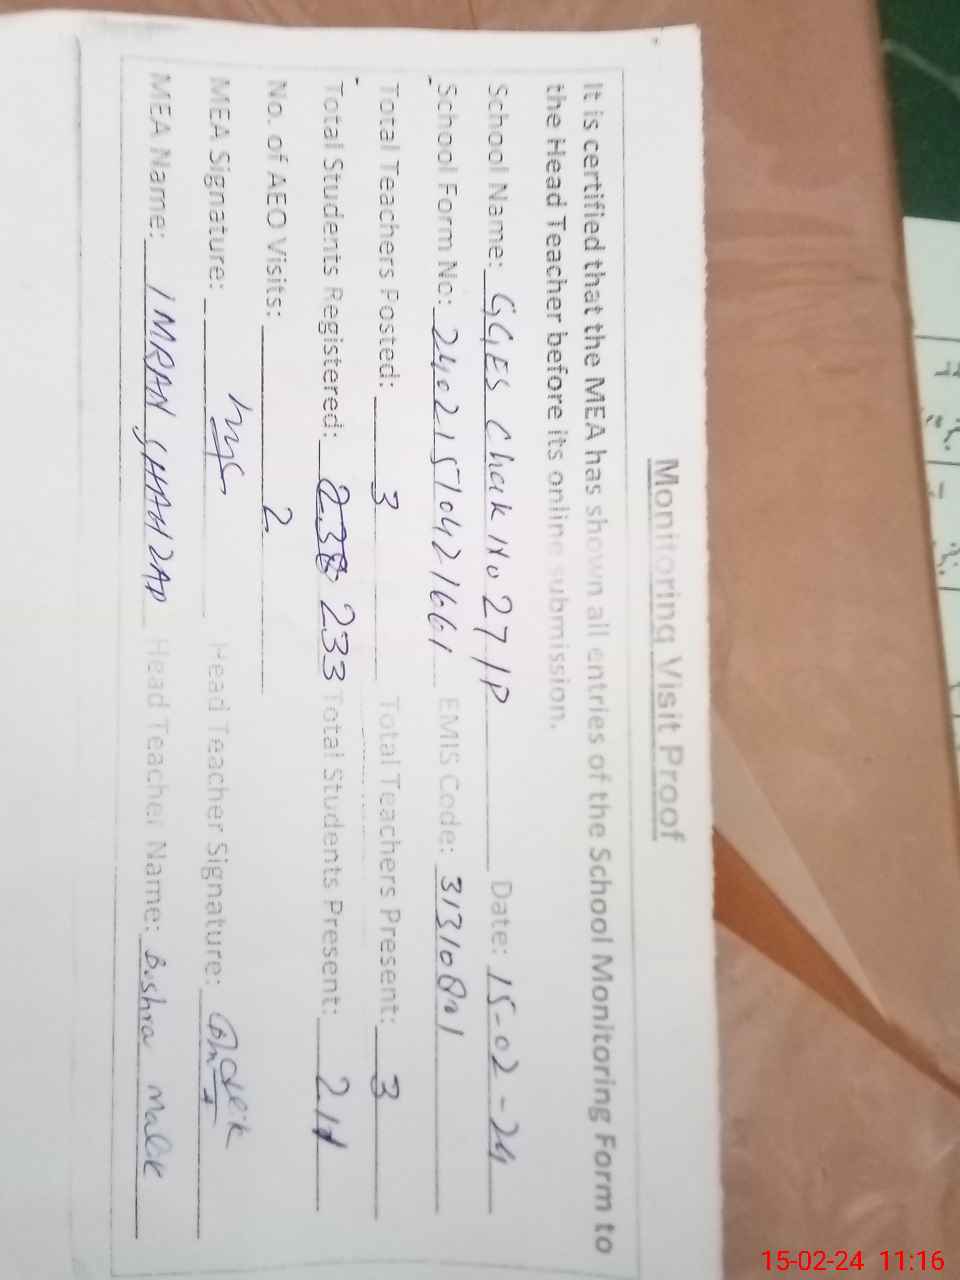 Monitoring Visit Proof
It is certified that the MEA has shown all entries of the School Monitoring Form to
the Head Teacher before its online submission.
School Name: GGES Chak No 27/P Date: 15-02-24
School Form No: 24021510421661 EMIS Code:
Total Teachers Posted: 3 Total Teachers Present: 3
Total Students Registered: 238 233 Total Students Present:
No. of AEO Visits: 2
MEA Signature: Head Teacher Signature:
MEA Name: IMRAN SHAHZAD Head Teacher Name: Bushra Malik
15-02-24 11:16